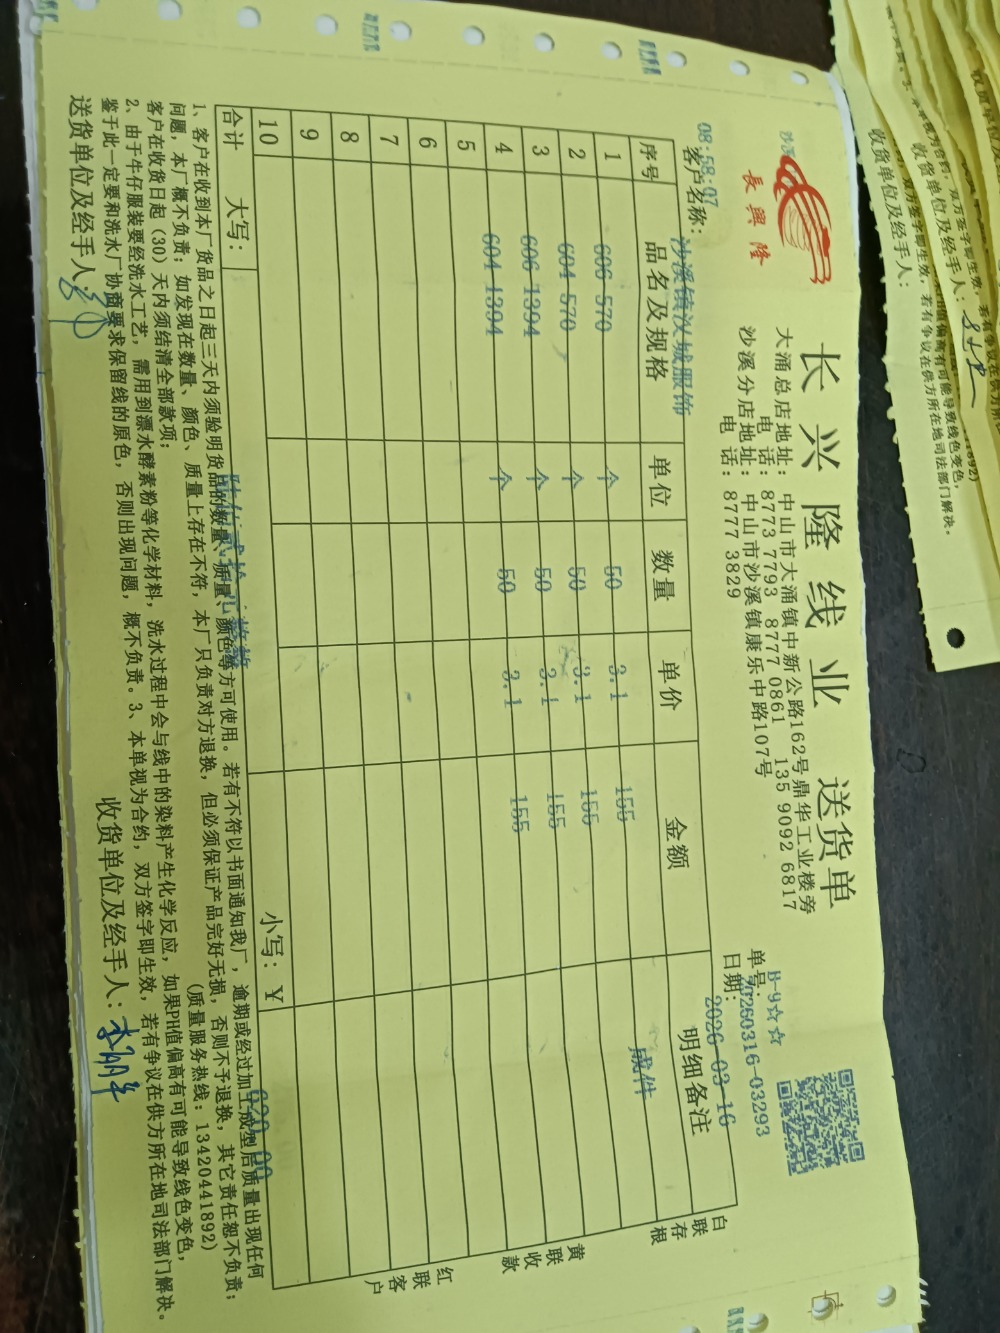 長興隆
长兴隆线业 送货单
大涌总店地址：中山市大涌镇中新公路162号鼎华工业楼旁
电话：8773 7793 8777 0861 135 9092 6817
沙溪分店地址：中山市沙溪镇康乐中路107号
电话：8777 3829
B-9☆☆
单号：20260316-03293
日期：2026-03-16
08:58:07
客户名称：沙溪镇汶城服饰
序号 品名及规格 单位 数量 单价 金额 明细备注
1 606 570 个 50 3.1 155 成件
2 604 570 个 50 3.1 155
3 606 1394 个 50 3.1 155
4 604 1394 个 50 3.1 155
5
6
7
8
9
10
合计 大写： 陆佰贰拾元整 小写：¥ 620.00
白联存根
黄联收款
红联客户
1、客户在收到本厂货品之日起三天内须验明货品的数量、质量、颜色等方可使用。若有不符以书面通知我厂，逾期或经过加工成型后质量出现任何
问题，本厂概不负责；如发现在数量、颜色、质量上存在不符，本厂只负责对方退换，但必须保证产品完好无损，否则不予退换，其它责任恕不负责；
客户在收货日起（30）天内须结清全部款项； (质量服务热线：13420441892)
2、由于牛仔服装要经洗水工艺，需用到漂水酵素粉等化学材料，洗水过程中会与线中的染料产生化学反应，如果PH值偏高有可能导致线色变色，
鉴于此一定要和洗水厂协商要求保留线的原色，否则出现问题，概不负责。3、本单视为合约，双方签字即生效，若有争议在供方所在地司法部门解决。
送货单位及经手人：
收货单位及经手人：
收货单位及经手人：
收货单位及经手人：